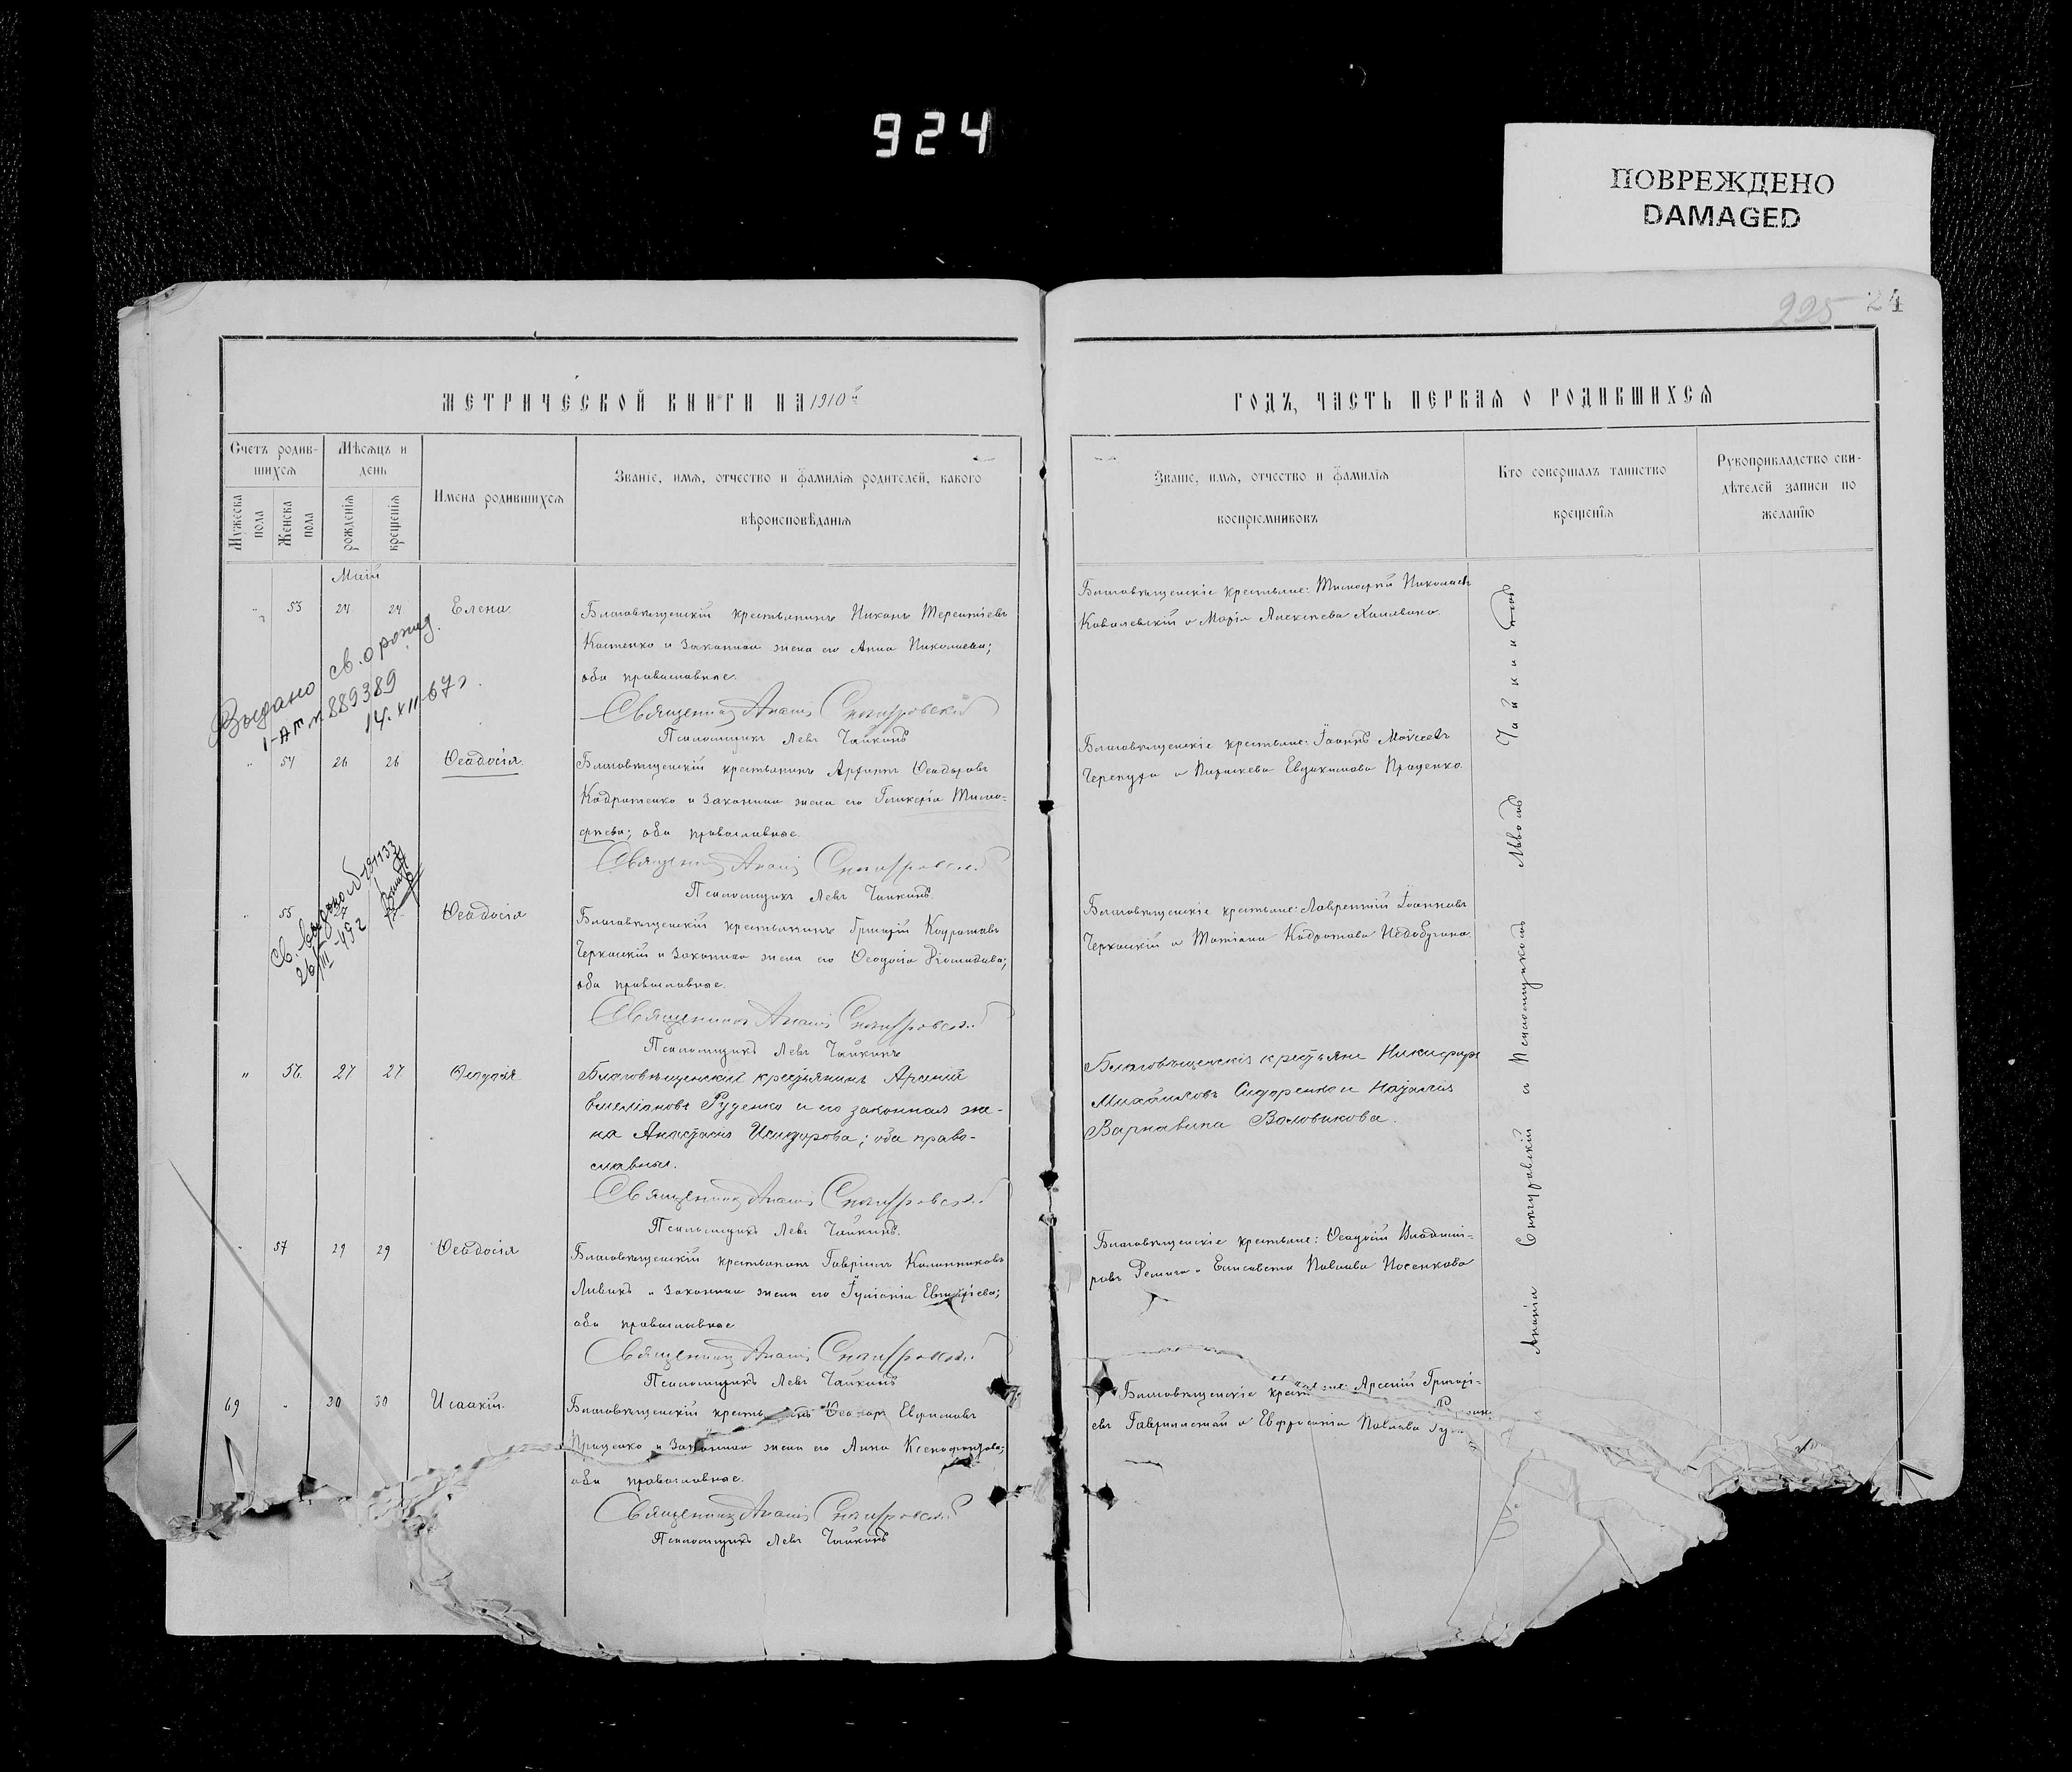 924
ПОВРЕЖДЕНО
DAMAGED
225 24
МЕТРИЧЕСКОЙ КНИГИ НА 1910й
ГОДЪ, ЧАСТЬ ПЕРВАЯ О РОДИВШИХСЯ
Счетъ родив-
шихся
Мужеска пола
Женска пола
Мѣсяцъ и
день
рожденія
крещенія
Имена родившихся
Званіе, имя, отчество и фамилія родителей, какого
вѣроисповѣданія
Званіе, имя, отчество и фамилія
воспріемниковъ
Кто совершалъ таинство
крещенія
Рукоприкладство сви-
дѣтелей записи по
желанію
Май
" 53 24 24 Елена
Благовѣщенскій крестьянинъ Никонъ Терентіевъ
Костенко и законная жена его Анна Николаева;
оба православные.
Священникъ Ананія
Псаломщикъ Левъ Чайкинъ
Благовѣщенскіе крестьяне: Тимофей Николаевъ
Ковалевскій и Марія Алексѣева
Выдано св. о рожд.
889389
14.XII 67 г.
" 54 26 26 Ѳеодосія
Благовѣщенскій крестьянинъ Ѳеодоровъ
Кодратенко и законная жена его Гликерія Тимо-
фѣева; оба православные.
Священникъ Ананія
Псаломщикъ Левъ Чайкинъ
Благовѣщенскіе крестьяне: Іоаннъ Моѵсеевъ
Черепуха и Параскева Евдокимова Проценко
Св. выдано
26/III
" 55 27 Ѳеодосія
Благовѣщенскій крестьянинъ Григорій Кодратовъ
Черкаскій и законная жена его Ѳеодосія Діомидова;
оба православные.
Священникъ Ананія
Псаломщикъ Левъ Чайкинъ
Благовѣщенскіе крестьяне: Лаврентій Іоанновъ
Черкаскій и Татіана Кодратова
" 56 27 27 Ѳеодосія
Благовѣщенскій крестьянинъ Арсеній
Емеліановъ Руденко и его законная же-
на Анастасія Исидорова; оба право-
славные.
Священникъ Ананія
Псаломщикъ Левъ Чайкинъ
Благовѣщенскіе крестьяне Никифоръ
Михайловъ Сидоренко и Наталія
Варнавина Воловикова.
" 57 29 29 Ѳеодосія
Благовѣщенскій крестьянинъ Гавріилъ Калинниковъ
и законная жена его Іуліанія
оба православные
Священникъ Ананія
Псаломщикъ Левъ Чайкинъ
Благовѣщенскіе крестьяне: Ѳеодосій Владимі-
ровъ и Елисавета Павлова Носенкова
69 " 30 30 Исаакій
Благовѣщенскій крестьянинъ Ѳеодоръ Ефимовъ
Проценко и законная жена его Анна Ксенофонтова;
оба православные.
Священникъ Ананія
Псаломщикъ Левъ Чайкинъ
Благовѣщенскіе крестьяне: Арсеній Григорі-
евъ и Евфросинія Павлова
Ананія съ Псаломщикомъ Львомъ Чайкинымъ